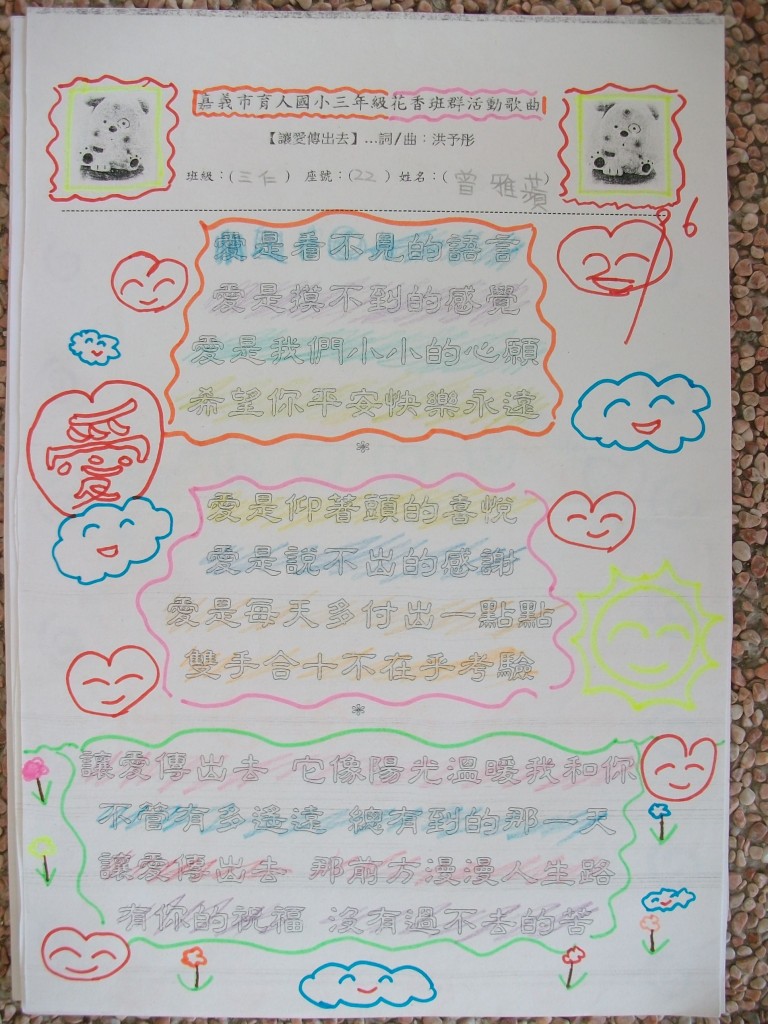 嘉義市育人國小三年級花香班群活動歌曲
【讓愛傳出去】…詞/曲：洪予彤
班級：(三仁) 座號：(22) 姓名：(曾雅蘋)
6
愛是看不見的語言
愛是摸不到的感覺
愛是我們小小的心願
希望你平安快樂永遠
愛
*
愛是仰著頭的喜悅
愛是說不出的感謝
愛是每天多付出一點點
雙手合十不在乎考驗
*
讓愛傳出去 它像陽光溫暖我和你
不管有多遙遠 總有到的那一天
讓愛傳出去 那前方漫漫人生路
有你的祝福 沒有過不去的苦